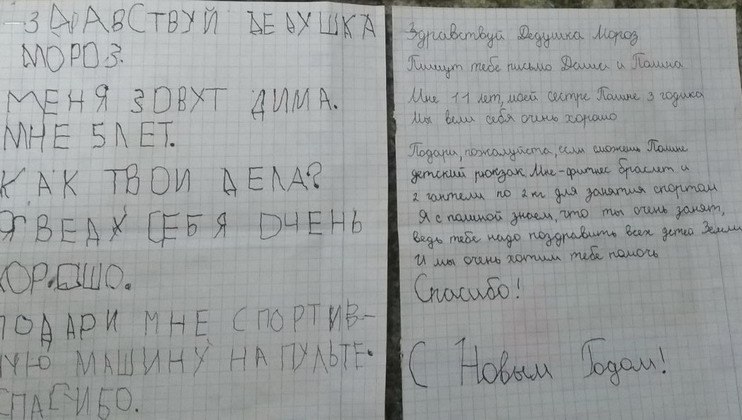 ЗДРАВСТВУЙ ДЕДУШКА
МОРОЗ.
МЕНЯ ЗОВУТ ДИМА.
МНЕ 5 ЛЕТ.
КАК ТВОИ ДЕЛА?
Я ВЕДУ СЕБЯ ОЧЕНЬ
ХОРОШО.
ПОДАРИ МНЕ СПОРТИВ-
НУЮ МАШИНУ НА ПУЛЬТЕ.
СПАСИБО.
Здравствуй Дедушка Мороз
Пишут тебе письмо Денис и Полина
Мне 11 лет, моей сестре Полине 3 годика
Мы вели себя очень хорошо
Подари, пожалуйста, если сможешь Полине
детский рюкзак, Мне-фитнес браслет и
2 гантели по 2 кг для занятия спортом
Я с полиной знаем, что ты очень занят,
ведь тебе надо поздравить всех детей Земли
И мы очень хотим тебе помочь
Спасибо!
С Новым Годом!